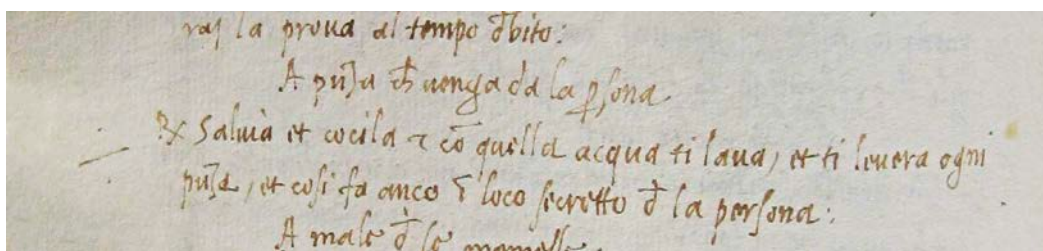 raj la prova al tempo đbito:
A puza ch̄ venga da la ꝑsona
℞ Salvia et cocila ⁊ cō quella acqua ti lava, et ti levera ogni
puza, et cosi fa anco ī loco secretto đ la persona:
A male đ le mamelle: